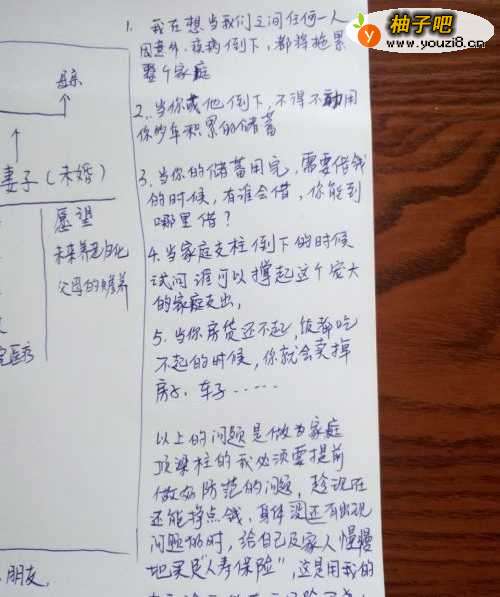 柚子吧
www.youzi8.cn
母亲
妻子（未婚）
愿望
未来养老
父母的赡养
朋友.
1. 我在想当我们之间任何一人
因意外,疾病倒下,都将拖累
整个家庭
2. 当你或他倒下,不得不动用
你多年积累的储蓄
3. 当你的储蓄用完,需要借钱
的时候,有谁会借,你能到
哪里借?
4. 当家庭支柱倒下的时候
试问谁可以撑起这个庞大
的家庭支出,
5. 当你房货还不起,饭都吃
不起的时候,你就会卖掉
房子、车子……
以上的问题是做为家庭
顶梁柱的我必须要提前
做好防范的问题,趁现在
还能挣点钱,身体没还有出现
问题时,给自己及家人慢慢
地买足“人寿保险”,这是用我的